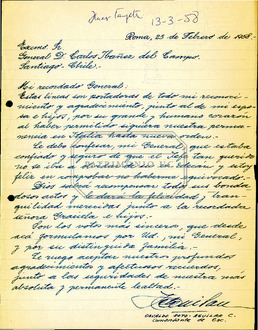 13-3-58
Roma, 25 de Febrero de 1958.
Excmo. Sr.
General D. Carlos Ibáñez del Campo.
Santiago - Chile.
Mi recordado General:
Estas líneas son portadoras de todo mi reconocimiento y agradecimiento, junto al de mi esposa e hijos, por su grande y humano corazón al haber permitido siguiera nuestra permanencia en Italia hasta nueva orden.
Le debo confesar, mi General, que estaba confiado y seguro de que el Jefe tan querido no se iba a olvidar de
feliz en comprobar no haberme equivocado.
Dios sabrá recompensar todos sus bondadosos actos y le dará la felicidad y tranquilidad merecidas junto a la recordada señora Graciela e hijos.
Son los votos más sinceros, que desde acá formulamos por Ud., mi General, y por su distinguida familia.
Le ruego aceptar nuestros profundos agradecimientos y afectuosos recuerdos, junto a las seguridades de nuestra más absoluta y permanente lealtad.